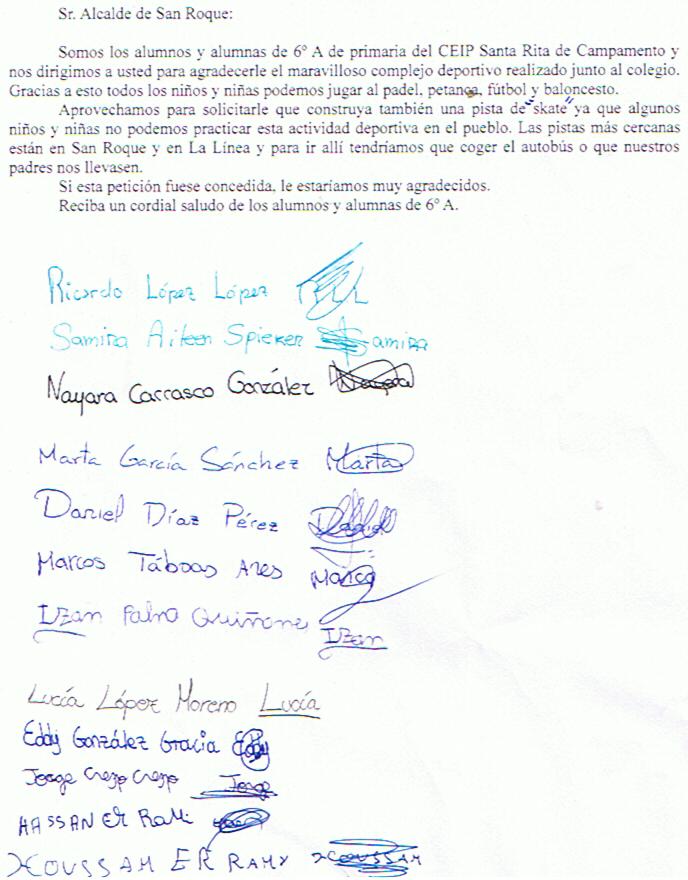 Sr. Alcalde de San Roque:
Somos los alumnos y alumnas de 6º A de primaria del CEIP Santa Rita de Campamento y
nos dirigimos a usted para agradecerle el maravilloso complejo deportivo realizado junto al colegio.
Gracias a esto todos los niños y niñas podemos jugar al padel, petanca, fútbol y baloncesto.
Aprovechamos para solicitarle que construya también una pista de "skate" ya que algunos
niños y niñas no podemos practicar esta actividad deportiva en el pueblo. Las pistas más cercanas
están en San Roque y en La Línea y para ir allí tendríamos que coger el autobús o que nuestros
padres nos llevasen.
Si esta petición fuese concedida, le estaríamos muy agradecidos.
Reciba un cordial saludo de los alumnos y alumnas de 6º A.
Ricardo López López
Samira Aileen Spieker Samira
Nayara Carrasco González Nayara
Marta García Sánchez Marta
Daniel Díaz Pérez Daniel
Marcos Táboas Ares Marcos
Izan Quiñones Izan
Lucía López Moreno Lucía
Eddy González Gracia Eddy
Jorge Crespo Crespo Jorge
HASSAN ER RaMi
XOUSSAM ER RAMY XOUSSAM